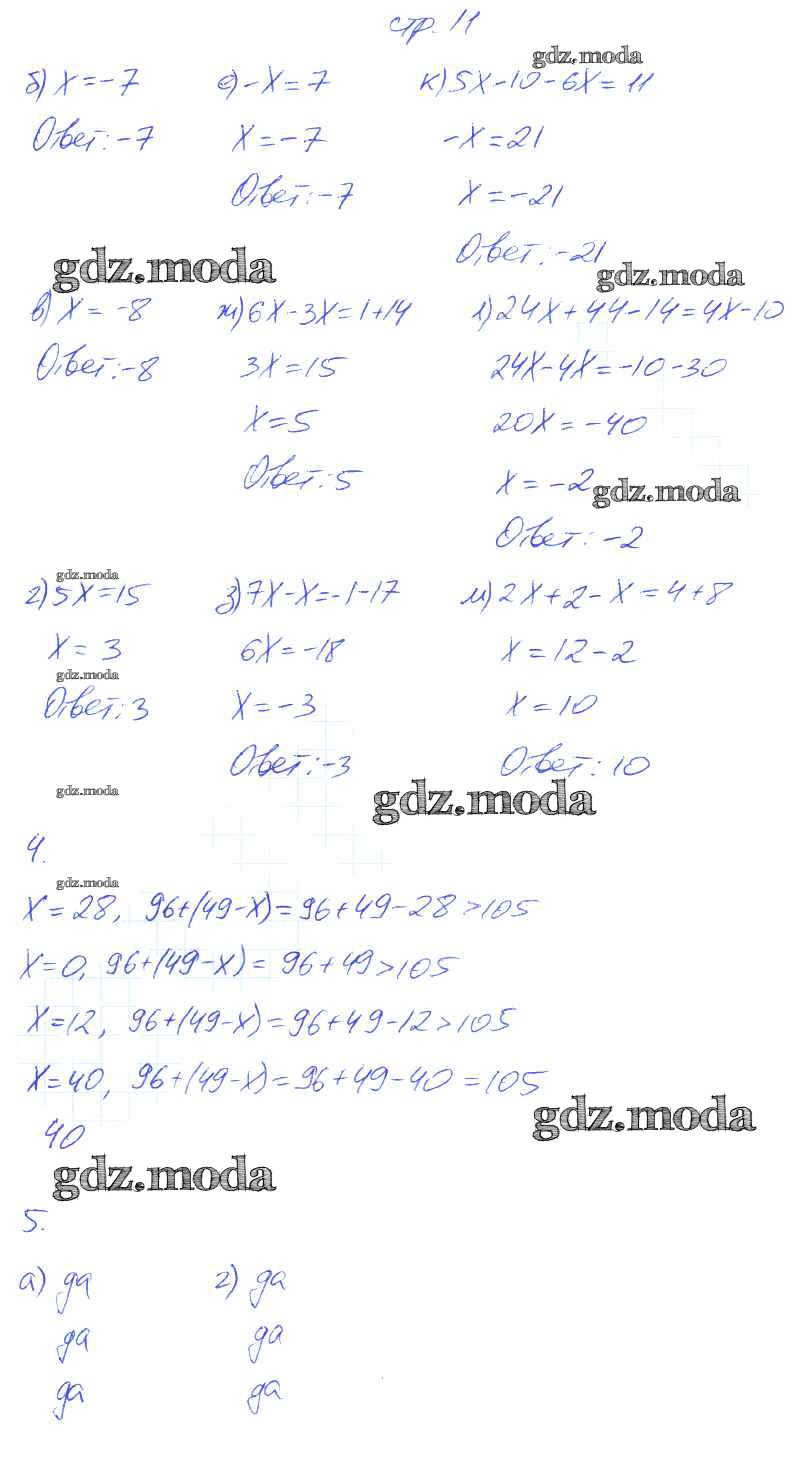 стр. 11
gdz.moda
б) X = -7 е) -X = 7 к) 5X - 10 - 6X = 11
Ответ: -7 X = -7 -X = 21
Ответ: -7 X = -21
Ответ: -21
gdz.moda gdz.moda
в) X = -8 ж) 6X - 3X = 1 + 14 л) 24X + 44 - 14 = 4X - 10
Ответ: -8 3X = 15 24X - 4X = -10 - 30
X = 5 20X = -40
Ответ: 5 X = -2 gdz.moda
Ответ: -2
gdz.moda
г) 5X = 15 з) 7X - X = -1 - 17 м) 2X + 2 - X = 4 + 8
X = 3 6X = -18 X = 12 - 2
gdz.moda
Ответ: 3 X = -3 X = 10
Ответ: -3 Ответ: 10
gdz.moda gdz.moda
4.
gdz.moda
X = 28, 96 + (49 - X) = 96 + 49 - 28 > 105
X = 0, 96 + (49 - X) = 96 + 49 > 105
X = 12, 96 + (49 - X) = 96 + 49 - 12 > 105
X = 40, 96 + (49 - X) = 96 + 49 - 40 = 105
gdz.moda
40
gdz.moda
5.
а) да г) да
да да
да да